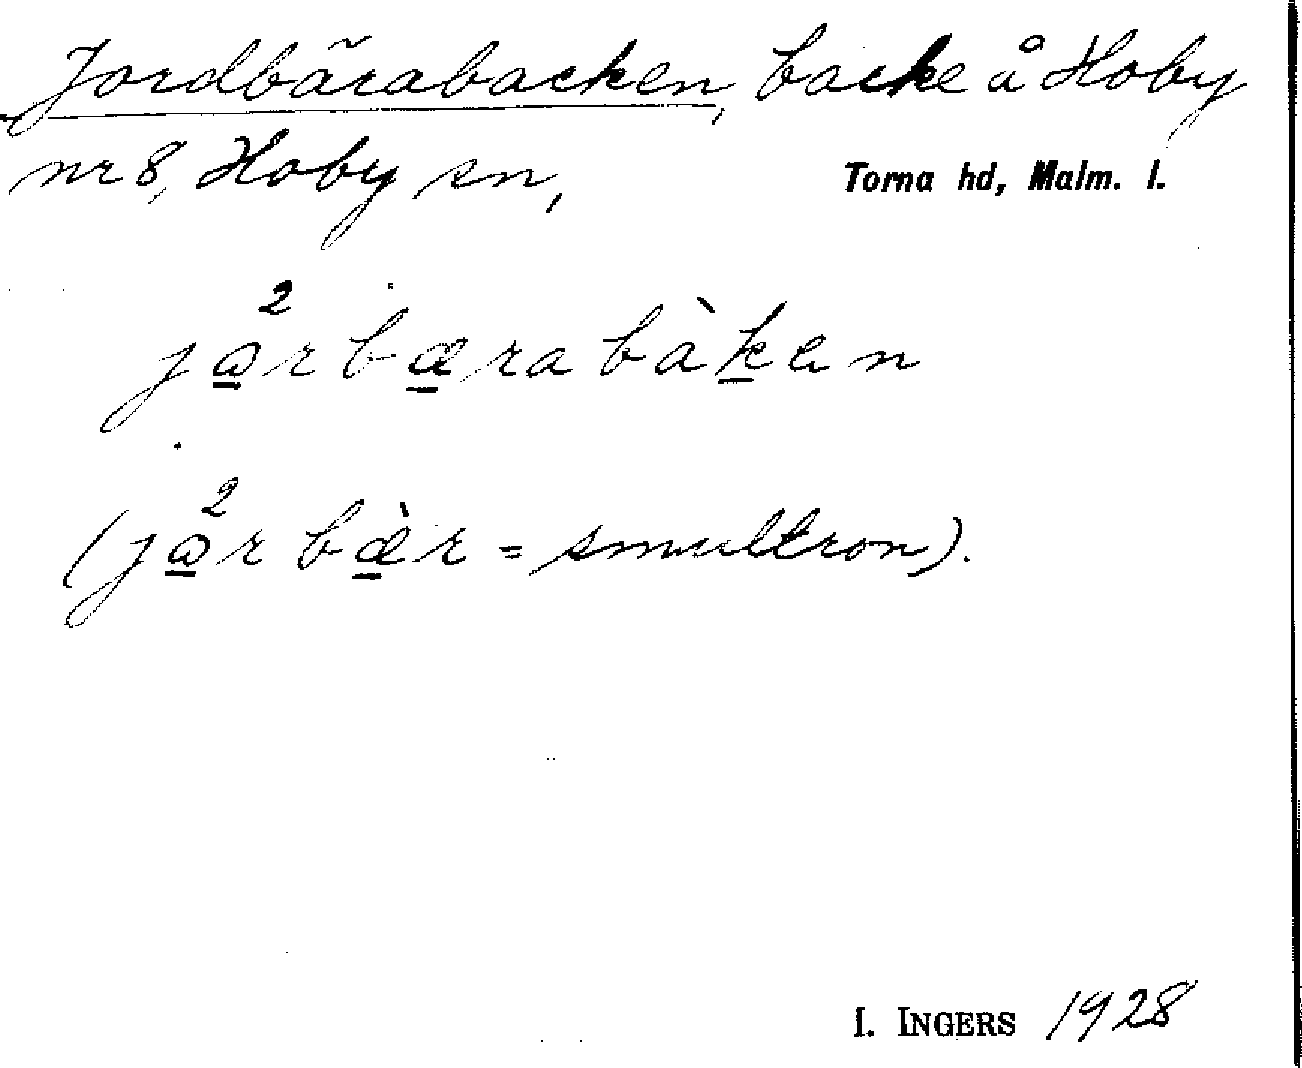 Jordbärabacken, backe å Hoby
nr 8, Hoby sn,
Torna hd, Malm. l.
j²a̲r bæ̲ra bàk̲en
(j²a̲r bæ̲̀r = smultron).
I. INGERS 1928